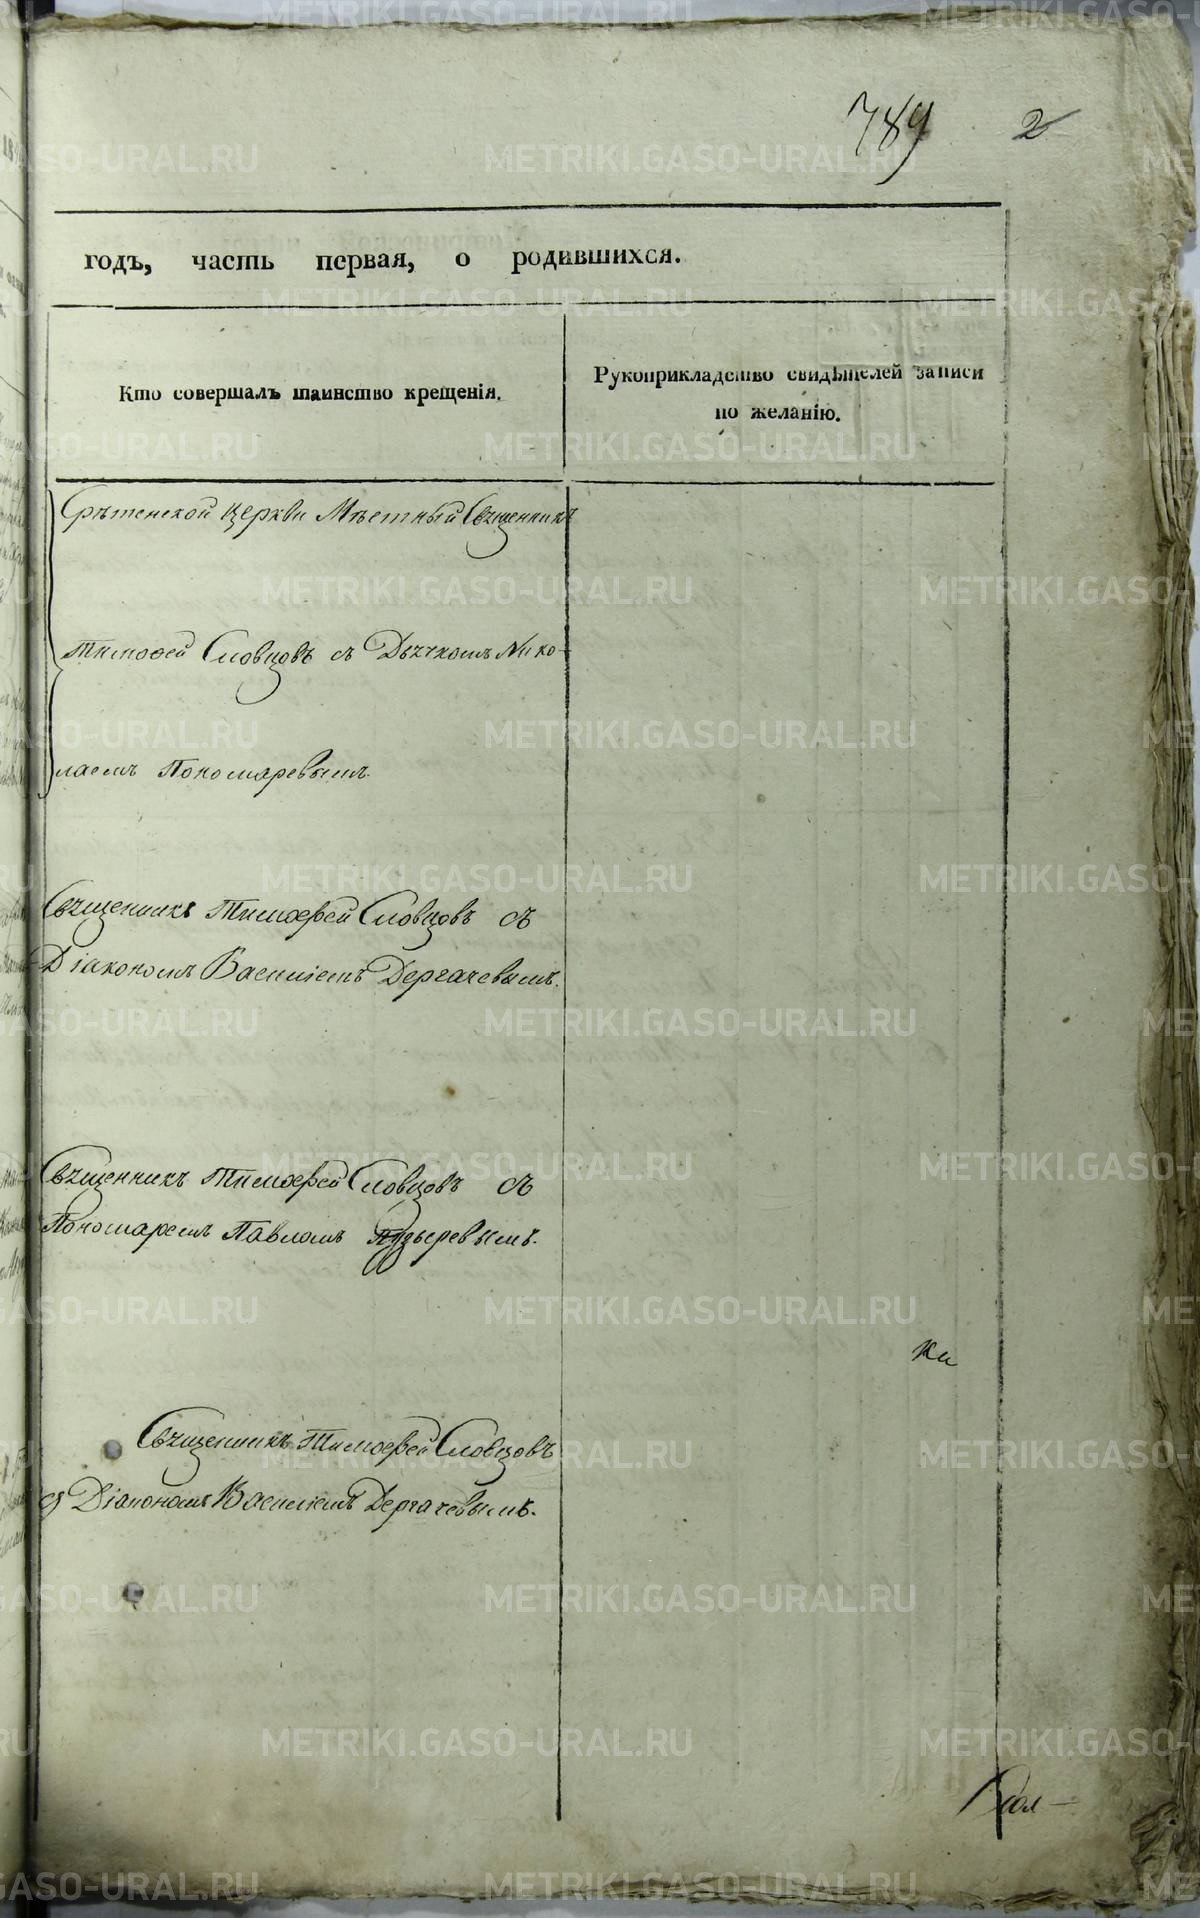 789 2
годъ, часть первая, о родившихся.
Кто совершалъ таинство крещенія.
Рукоприкладство свидѣтелей записи
по желанію.
Срѣтенской церкви Мѣстный Священникъ
Тимофей Словцовъ съ Дьячкомъ Нико-
лаемъ Пономаревымъ.
Священникъ Тимофей Словцовъ съ
Діакономъ Василіемъ Дергачевымъ.
Священникъ Тимофей Словцовъ съ
Пономаремъ Павломъ Пузыревымъ.
Священникъ Тимофей Словцовъ
съ Діакономъ Василіемъ Дергачевымъ.
METRIKI.GASO-URAL.RU